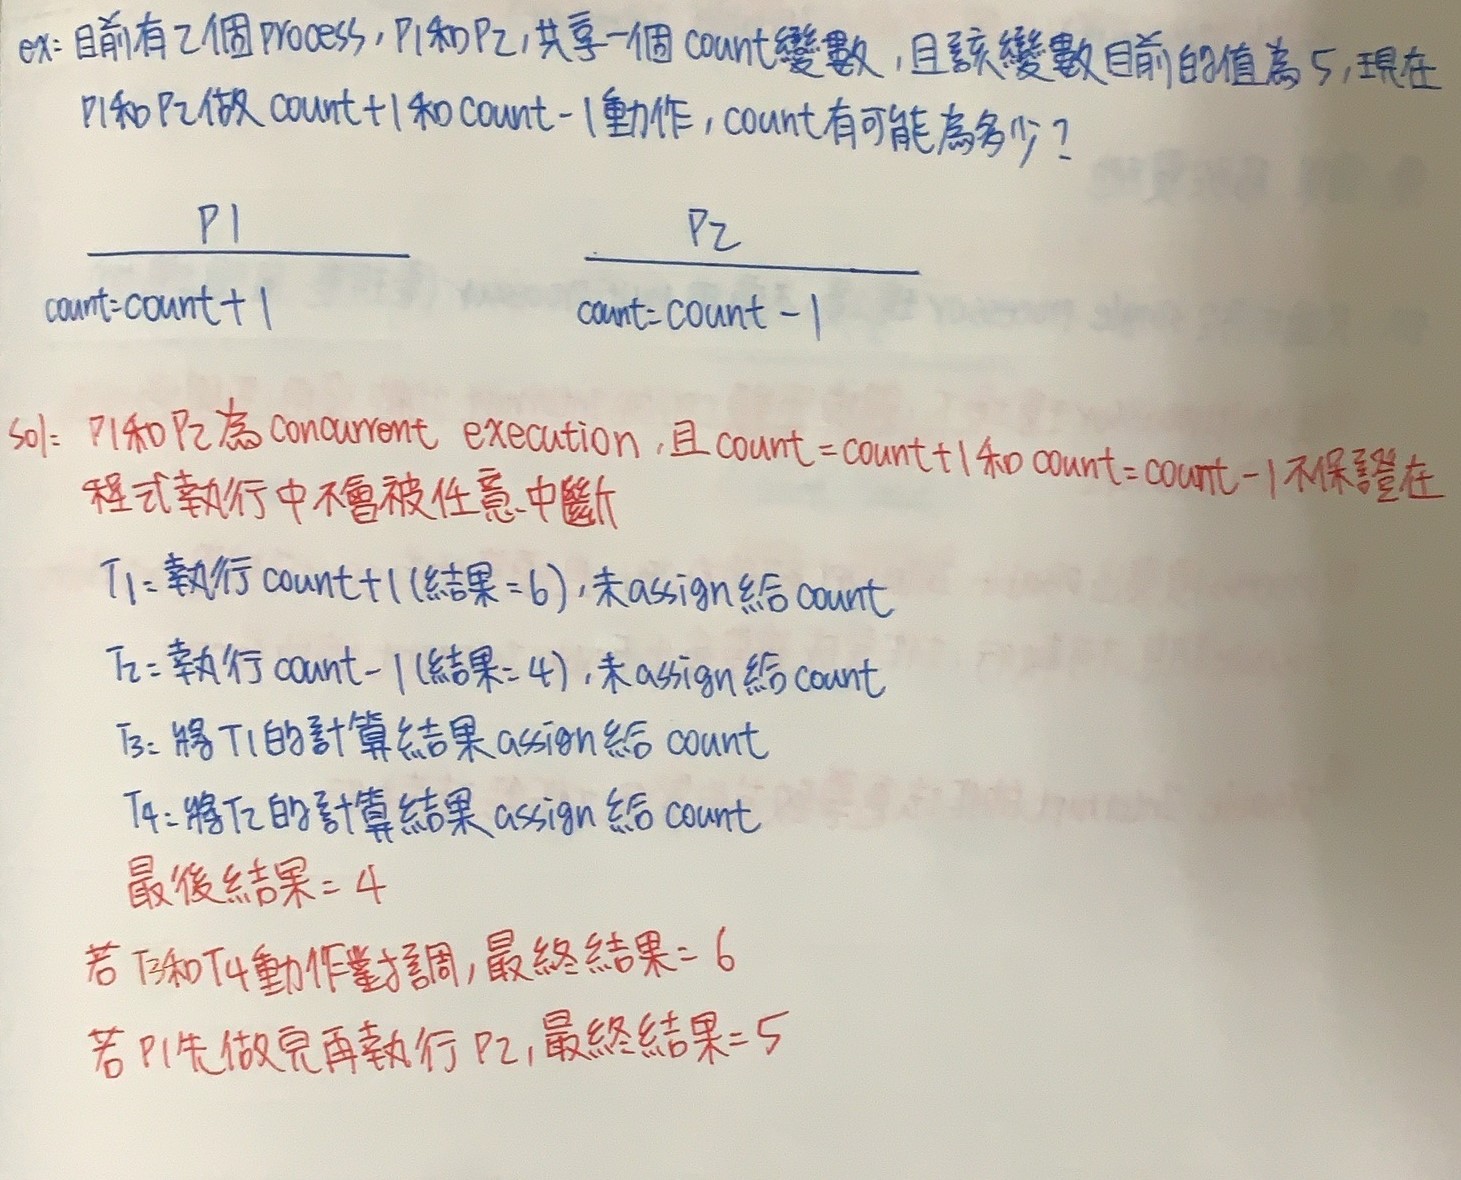 ex: 目前有2個process, P1和P2, 共享一個count變數, 且該變數目前的值為5, 現在
P1和P2做count+1和count-1動作, count有可能為多少?
P1
P2
count=count+1
count=count-1
sol: P1和P2為concurrent execution, 且count=count+1和count=count-1不保證在
程式執行中不會被任意中斷
T1: 執行count+1(結果=6), 未assign給count
T2: 執行count-1(結果=4), 未assign給count
T3: 將T1的計算結果assign給count
T4: 將T2的計算結果assign給count
最後結果=4
若T3和T4動作對調, 最終結果=6
若P1先做完再執行P2, 最終結果=5